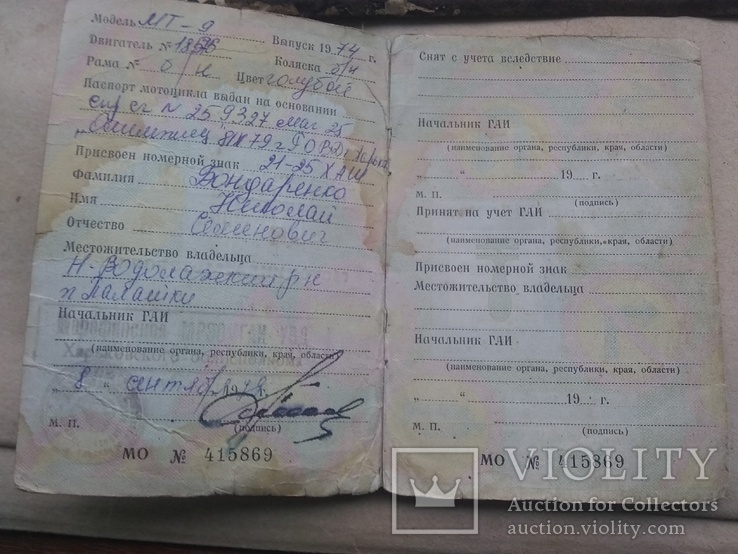 Модель МТ-9
Двигатель № Выпуск 1974 г.
Рама № б/н Коляска б/н
Цвет голубой
Паспорт мотоцикла выдан на основании
спр сг N 259327 маг 25
Присвоен номерной знак 21-25 ХАШ
Фамилия Бондаренко
Имя Николай
Отчество Семенович
Местожительство владельца
Н-Водолажский р-н
Начальник ГАИ
(наименование органа, республики, края, области)
„8 “ сентябр 19 г.
М. П. (подпись)
МО № 415869
Снят с учета вследствие
Начальник ГАИ
(наименование органа, республики, края, области)
„ “ 19 г.
М. П. (подпись)
Принят на учет ГАИ
(наименование органа, республики, края, области)
Присвоен номерной знак
Местожительство владельца
Начальник ГАИ
(наименование органа, республики, края, области)
„ “ 19 г.
М. П. (подпись)
МО № 415869
VIOLITY
Auction for Collectors
auction.violity.com